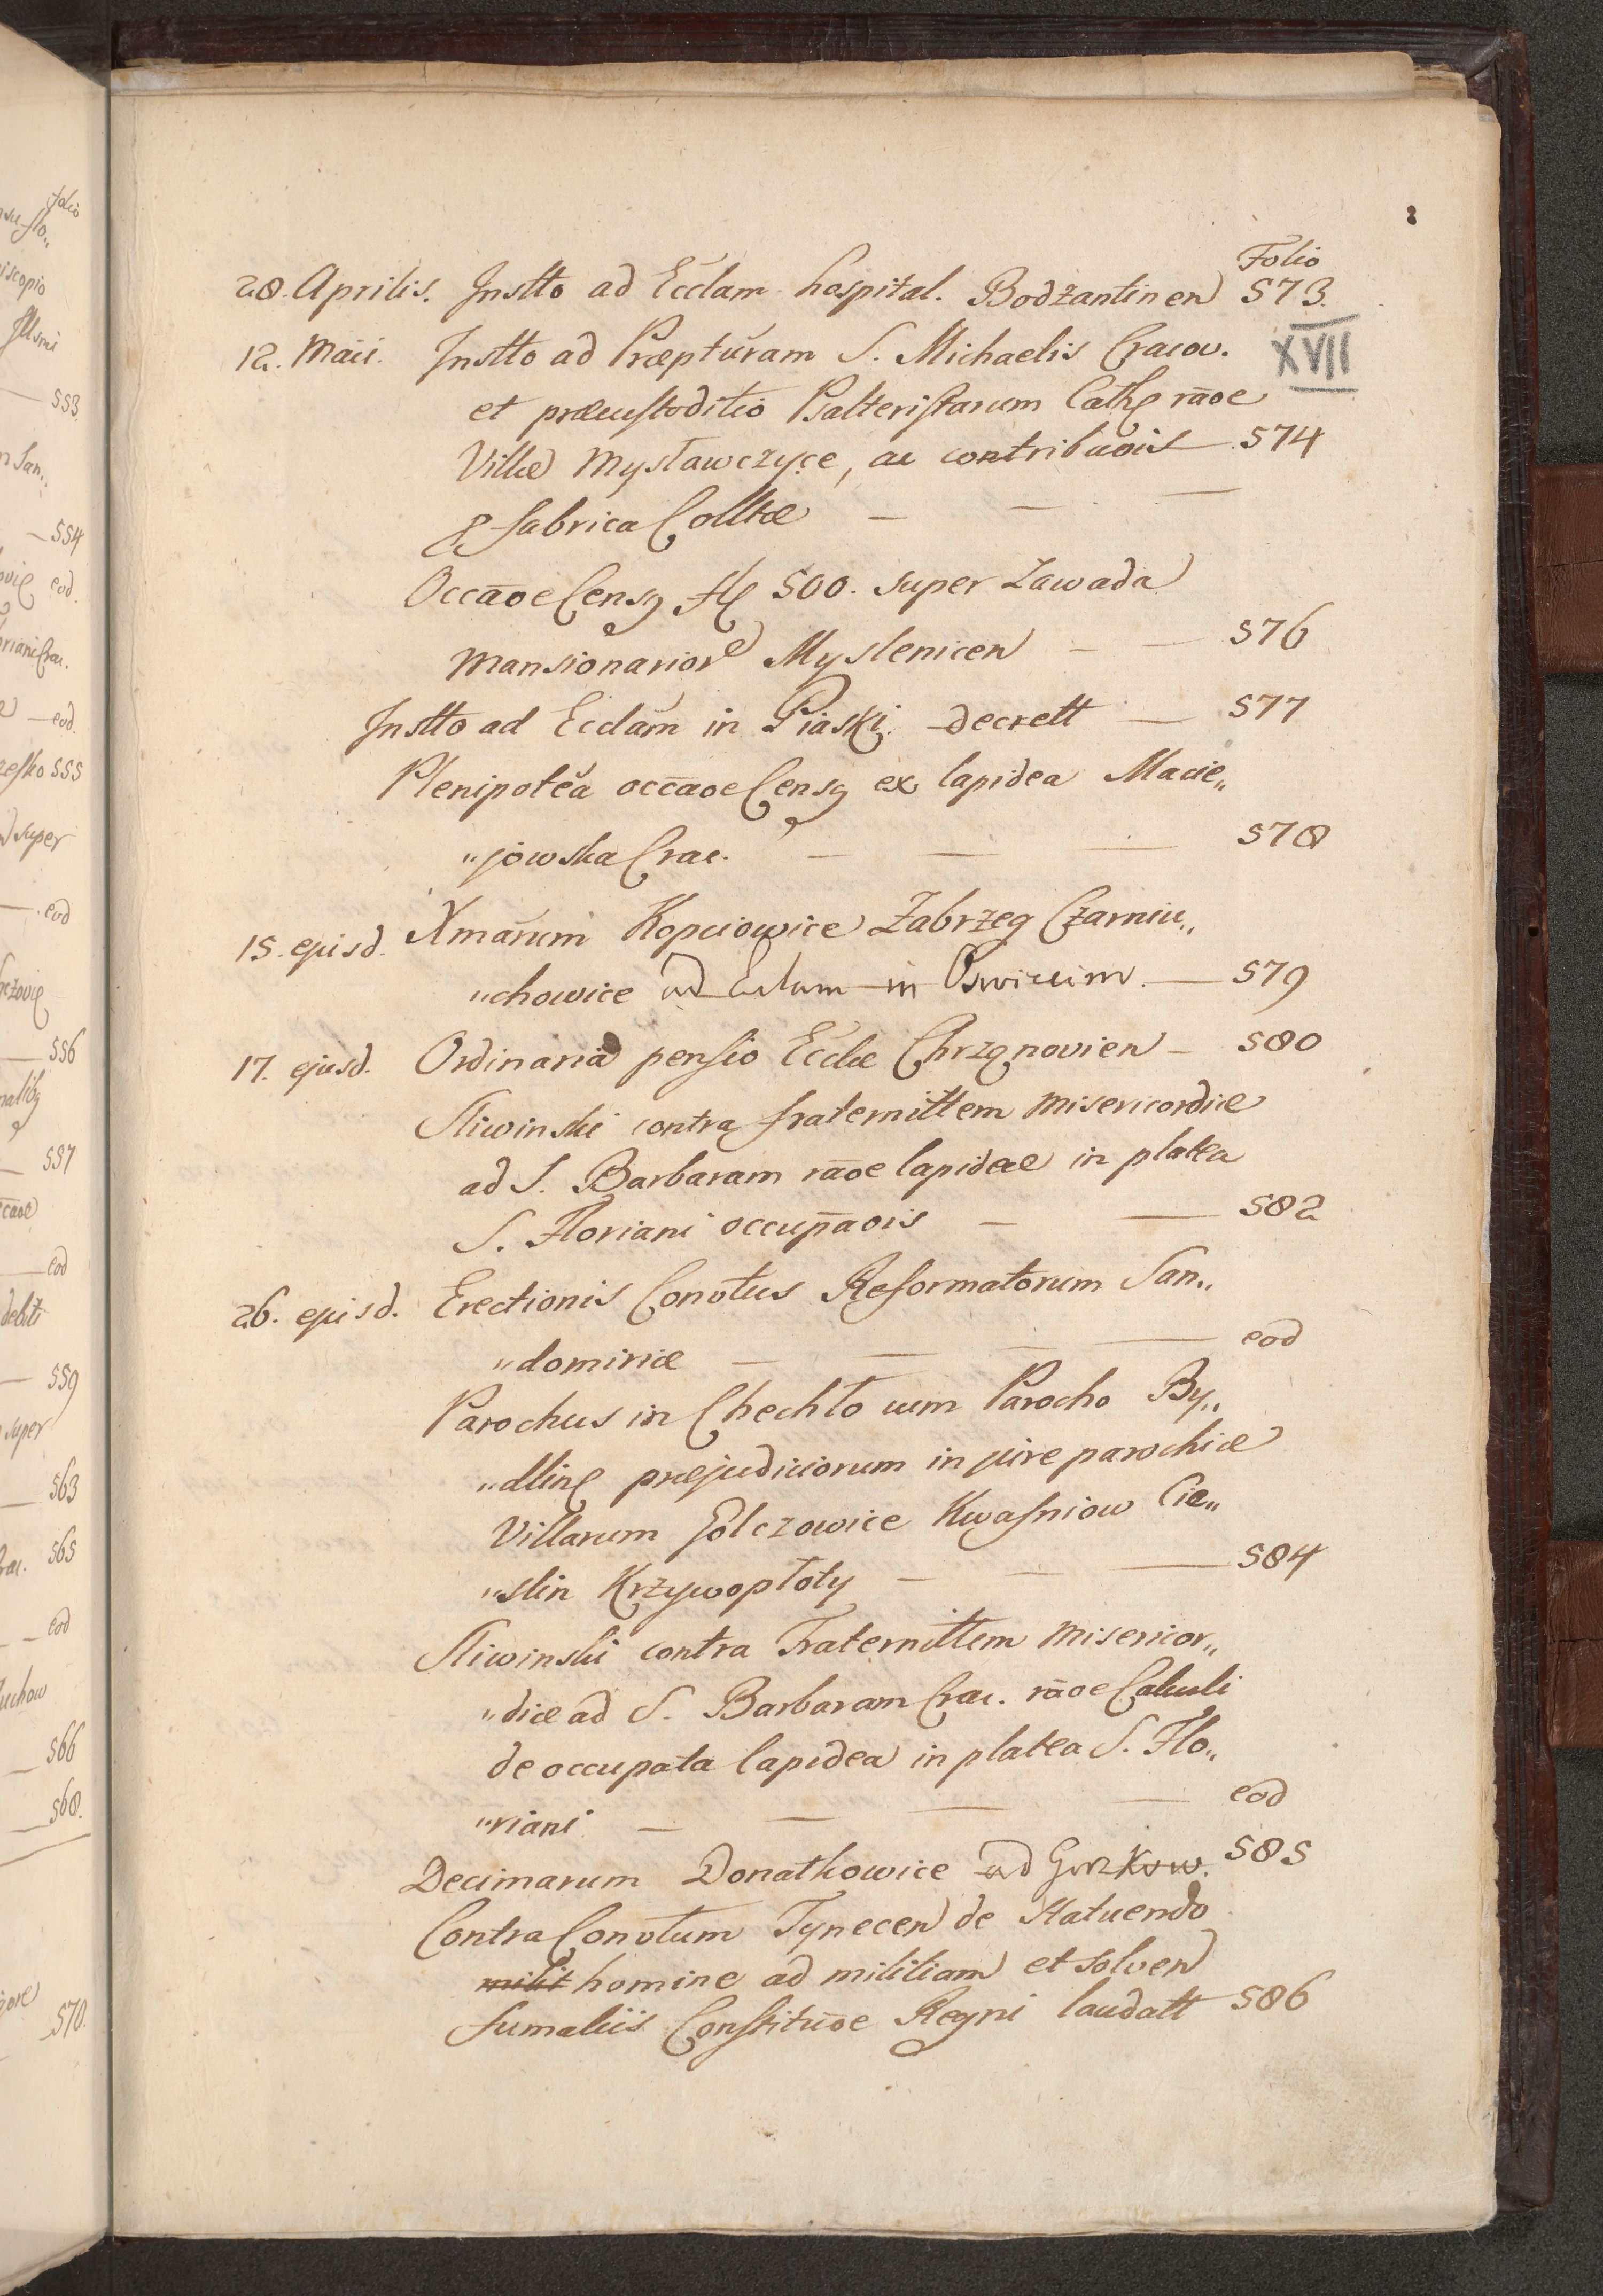 Folio
28. Aprilis. Instto ad Ecclam hospital. Bodzantinen 573.
XVII
12. Maii. Instto ad Præpturam S. Michaelis Cracov.
et præcustoditio Psalteristarum Cath raõe
Villæ Mysławczyce, ac contribuõis — 574
fabrica Colltæ — — —
Occaõe Censq fl 500. super Zawada
Mansionarior Myslenicen — — 576
Instto ad Ecclam in Piaski. decrett — 577
Plenipotea occaõe Censq ex lapidea Macie„
„jowska Crac. — — — 578
15. ejusd. Xmarum Kopciowice Zabrzeg Czarniu„
„chowice ad Eclam in Oswiecim. — 579
17. ejusd. Ordinaria pensio Eccliæ Chrzanovien — 580
Sliwinski contra fraternittem Misericordiæ
ad S. Barbaram raõe lapideæ in platea
S. Floriani occupaõis — — 582
26. ejusd. Erectionis Convtus Reformatorum San„
„domiriæ — — — — eod
Parochus in Chechło cum Parocho By„
„dlin præjudiciorum in jure parochiæ
Villarum Golczowice Kwasniow Cie„
„slin Krzywopłoty — — — 584
Sliwinski contra Fraternittem Misericor„
„diæ ad S. Barbaram Crac. raõe Calculi
de occupata lapidea in platea S. Flo„
„riani — — — — eod
Decimarum Donatkowice ad Gorzkow. 585
Contra Convtum Tynecen de statuendo
milit homine ad militiam et solven
fumaliis Constituõe Regni laudatt 586